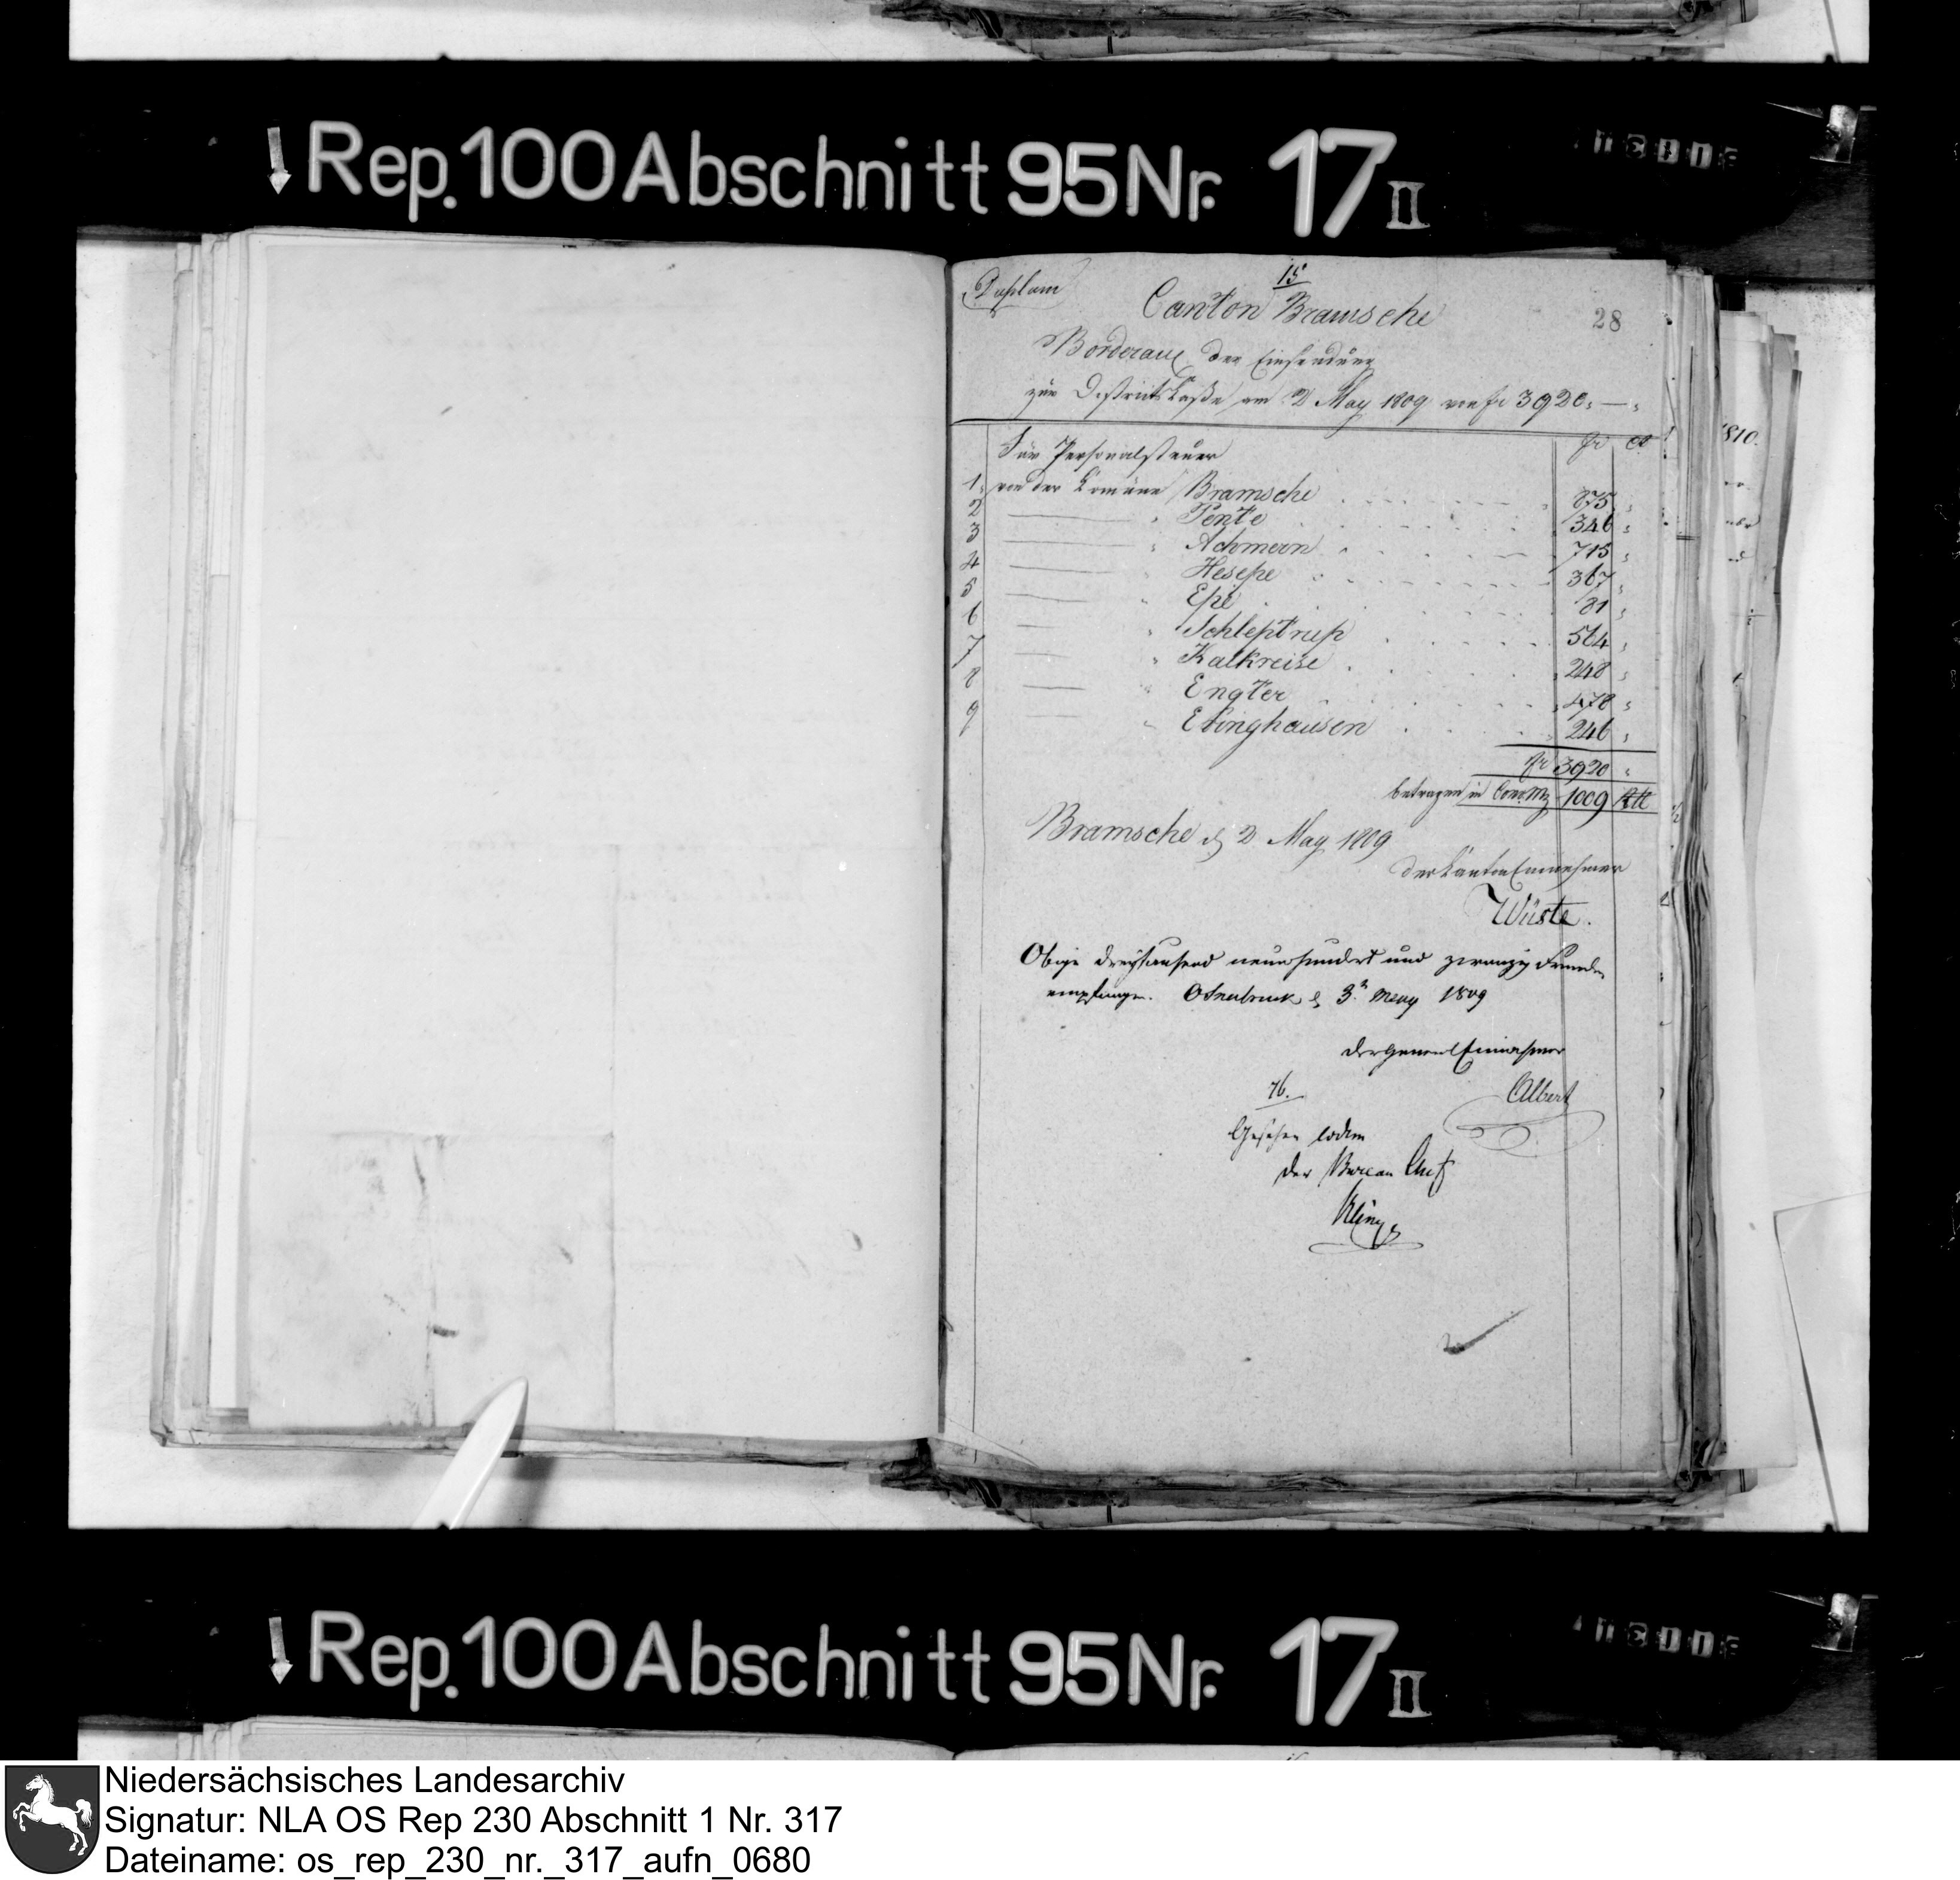 ↓ Rep. 100 Abschnitt 95 Nr. 17 II
15
Canton Bramsche
28
Bordereau der Einsendung
zur Districtskasse am 2 May 1809 von fr 3920, —,
fr ct
Für Personalsteuer
1, von der Comüne Bramsche 875 "
2 " Pente 346 "
3 " Achmern 715 "
4 " Hesepe 367 "
5 " Epe 81 "
6 " Schleptrup 564 "
7 " Kalkreise 248 "
8 " Engter 478 "
9 " Evinghausen 246 "
fr 3920 "
betragen in Conv. Mz 1009 Rtl
Bramsche d 2 May 1809
der Canton Einnehmer
Wüste.
Obige dreytausend neunhundert und zwanzig Franken
empfangen. Osnabruck d 3n May 1809
der General Einnehmer
Albert
76.
Gesehen eodem
der Bureau Chef
1810.
↓ Rep. 100 Abschnitt 95 Nr. 17 II
Niedersächsisches Landesarchiv
Signatur: NLA OS Rep 230 Abschnitt 1 Nr. 317
Dateiname: os_rep_230_nr._317_aufn_0680